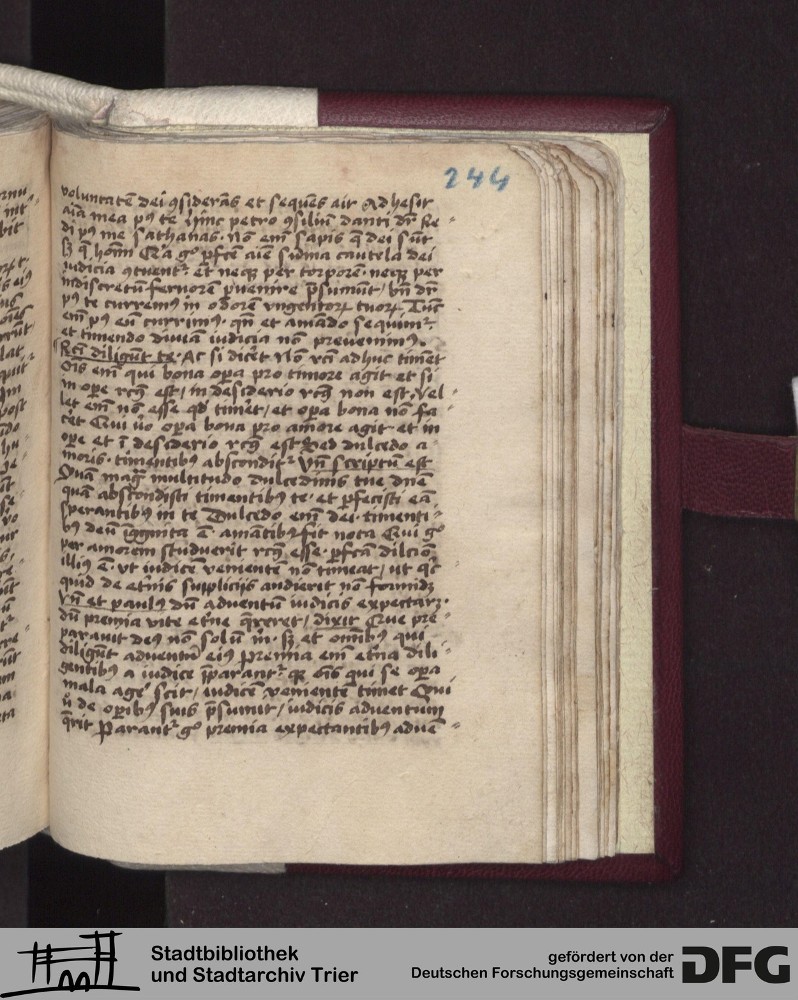 244
voluntatē dei ꝯsiderās et sequēs ait Adhesit
aīa mea pꝰ te Hinc petro ꝯsiliū danti dr̄ Re-
di pꝰ me sathanas. Nō em̄ sapis q̄ dei sūt
sꝫ q̄ hoīm Qꝛ gͦ pfcē aīe sūma cautela dei
iudicia ītuent᷑ Et neqꝫ per torporē neqꝫ per
indiscretū feruorē puenire p̄sumūt bn̄ dr̄
pꝰ te curremꝰ in odorē vngentoꝝ tuoꝝ. Tūc
em̄ pꝰ eū currimꝰ. qn̄ et amādo sequim᷑.
et timendo diuīa iudicia nō preuenimꝰ.
Rcī diligūt te. Ac si dicēt Nō rcī adhuc timēt
Oīs em̄ qui bona opa pro timore agit et si
in ope rcꝰ est / in desiderio rcꝰ non est. Vel-
let em̄ nō esse qd timēt / et opa bona nō fa-
cēt Qui v̄o opa bona pro amore agit et in
ope et ī desiderio rcꝰ est Sed dulcedo a-
moris. timentibꝰ abscondit᷑ Vn̄ scriptū est
Quā maḡ multitudo dulcedinis tue dn̄e
quā abscondisti timentibꝰ te. et pfecisti eā
sperantibꝰ in te Dulcedo em̄ dei. timenti-
bꝰ deū īgnita ē. amātibꝰ fit nota Qui gͦ
per amorem studuerit rcꝰ esse. pfcā dilcīo
illiꝰ ē. vt iudicē venientē nō timeat / ut qc̄
quid de et̄nis suppliciis audierit nō formidꝫ
Vn̄ et paulꝰ dū aduentū iudicis expectarꝫ.
dū premia vite et̄ne q̄reret / dixit Que pre-
parauit deꝰ nō solū m̄. sꝫ et om̄ibꝰ qui
diligūt aduentū eiꝰ Premia em̄ et̄na dili-
gentibꝰ a iudice p̄parant᷑ qꝫ oīs qui se opa
mala age᷑ scit / iudicē venientē timet Qui
v̄ de opibꝰ suis p̄sumit / iudicis aduentum
q̄rit Parant᷑ gͦ premia expectantibꝰ aduē-
Stadtbibliothek
und Stadtarchiv Trier
gefördert von der
Deutschen Forschungsgemeinschaft
DFG